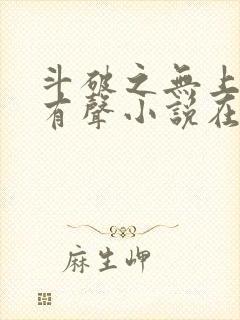 斗破之無上
有聲小説在
麻生岬